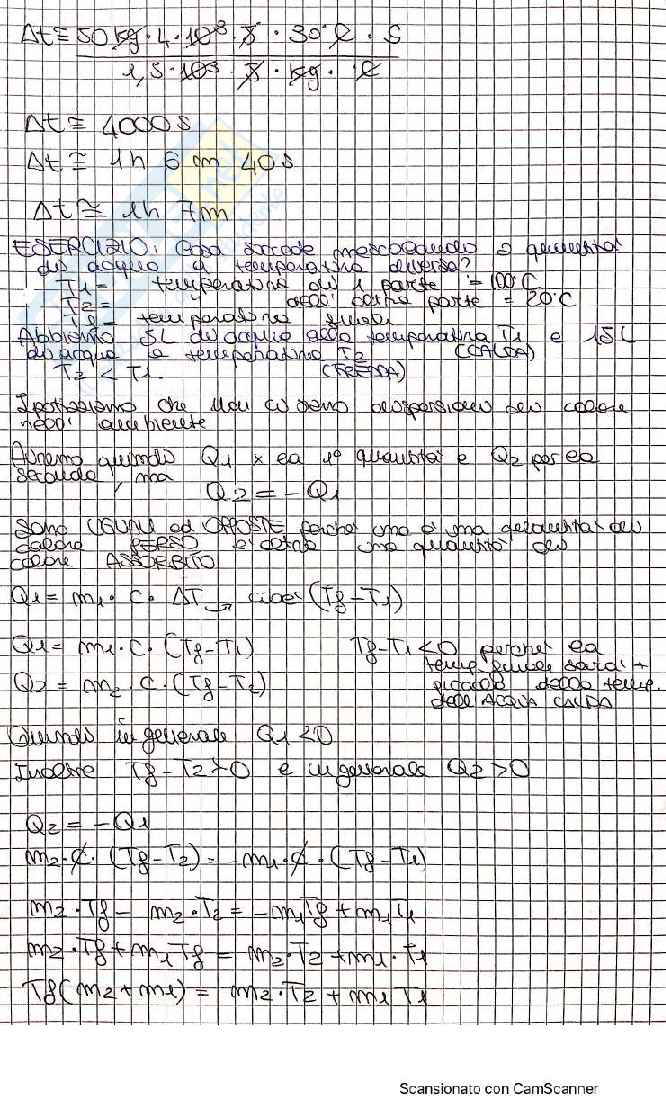 Δt ≅ 50 kg · 4 · 10³ · J · 30°C · S
1,5 · 10³ · J · kg · °C
Δt ≅ 4000 s
Δt ≅ 1h 6 m 40s
Δt ≅ 1h 7m
ESERCIZIO: Cosa succede mescolando 2 quantità
di acqua a temperatura diversa?
T1 = temperatura di 1 parte = 100°C
T2 = dell'altra parte = 20°C
Tf = temperatura finale
Abbiamo 5L di acqua alla temperatura T1 e 15L
di acqua a temperatura T2 (CALDA)
T2 < T1 (FREDDA)
Ipotizziamo che non ci siano dispersioni di calore
nell'ambiente
Avremo quindi Q1 x la 1ª quantità e Q2 per la
seconda, ma
Q2 = - Q1
Sono UGUALI ed OPPOSTE perché una è una quantità di
calore PERSO e l'altra una quantità di
calore ASSORBITO
Q1 = m1 · C · ΔT → cioè (Tf - T1)
Q1 = m1 · C · (Tf - T1) Tf - T1 < 0 perché la
temp. finale sarà +
Q2 = m2 · C · (Tf - T2) piccola della temp.
dell'ACQUA CALDA
Quindi in generale Q1 < 0
Invece Tf - T2 > 0 e in generale Q2 > 0
Q2 = - Q1
m2 · C · (Tf - T2) = - m1 · C · (Tf - T1)
m2 · Tf - m2 · T2 = - m1 Tf + m1 T1
m2 · Tf + m1 Tf = m2 · T2 + m1 · T1
Tf (m2 + m1) = m2 · T2 + m1 T1
Scansionato con CamScanner